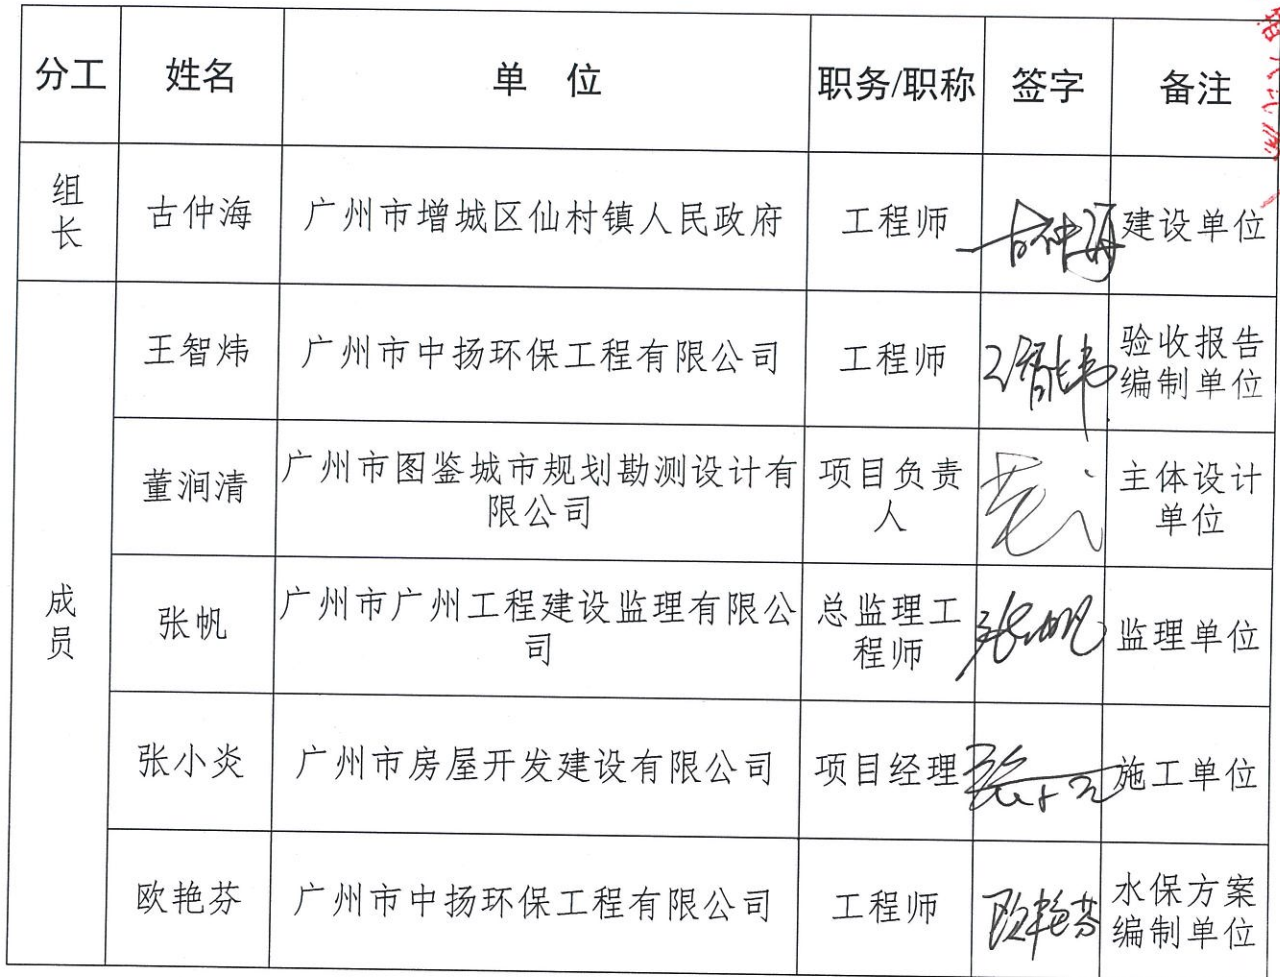 分工 姓名 单 位 职务/职称 签字 备注
组长 古仲海 广州市增城区仙村镇人民政府 工程师 古仲海 建设单位
成员
王智炜 广州市中扬环保工程有限公司 工程师 王智炜 验收报告
编制单位
董涧清 广州市图鉴城市规划勘测设计有
限公司 项目负责
人 主体设计
单位
张帆 广州市广州工程建设监理有限公
司 总监理工
程师 张帆 监理单位
张小炎 广州市房屋开发建设有限公司 项目经理 施工单位
欧艳芬 广州市中扬环保工程有限公司 工程师 欧艳芬 水保方案
编制单位